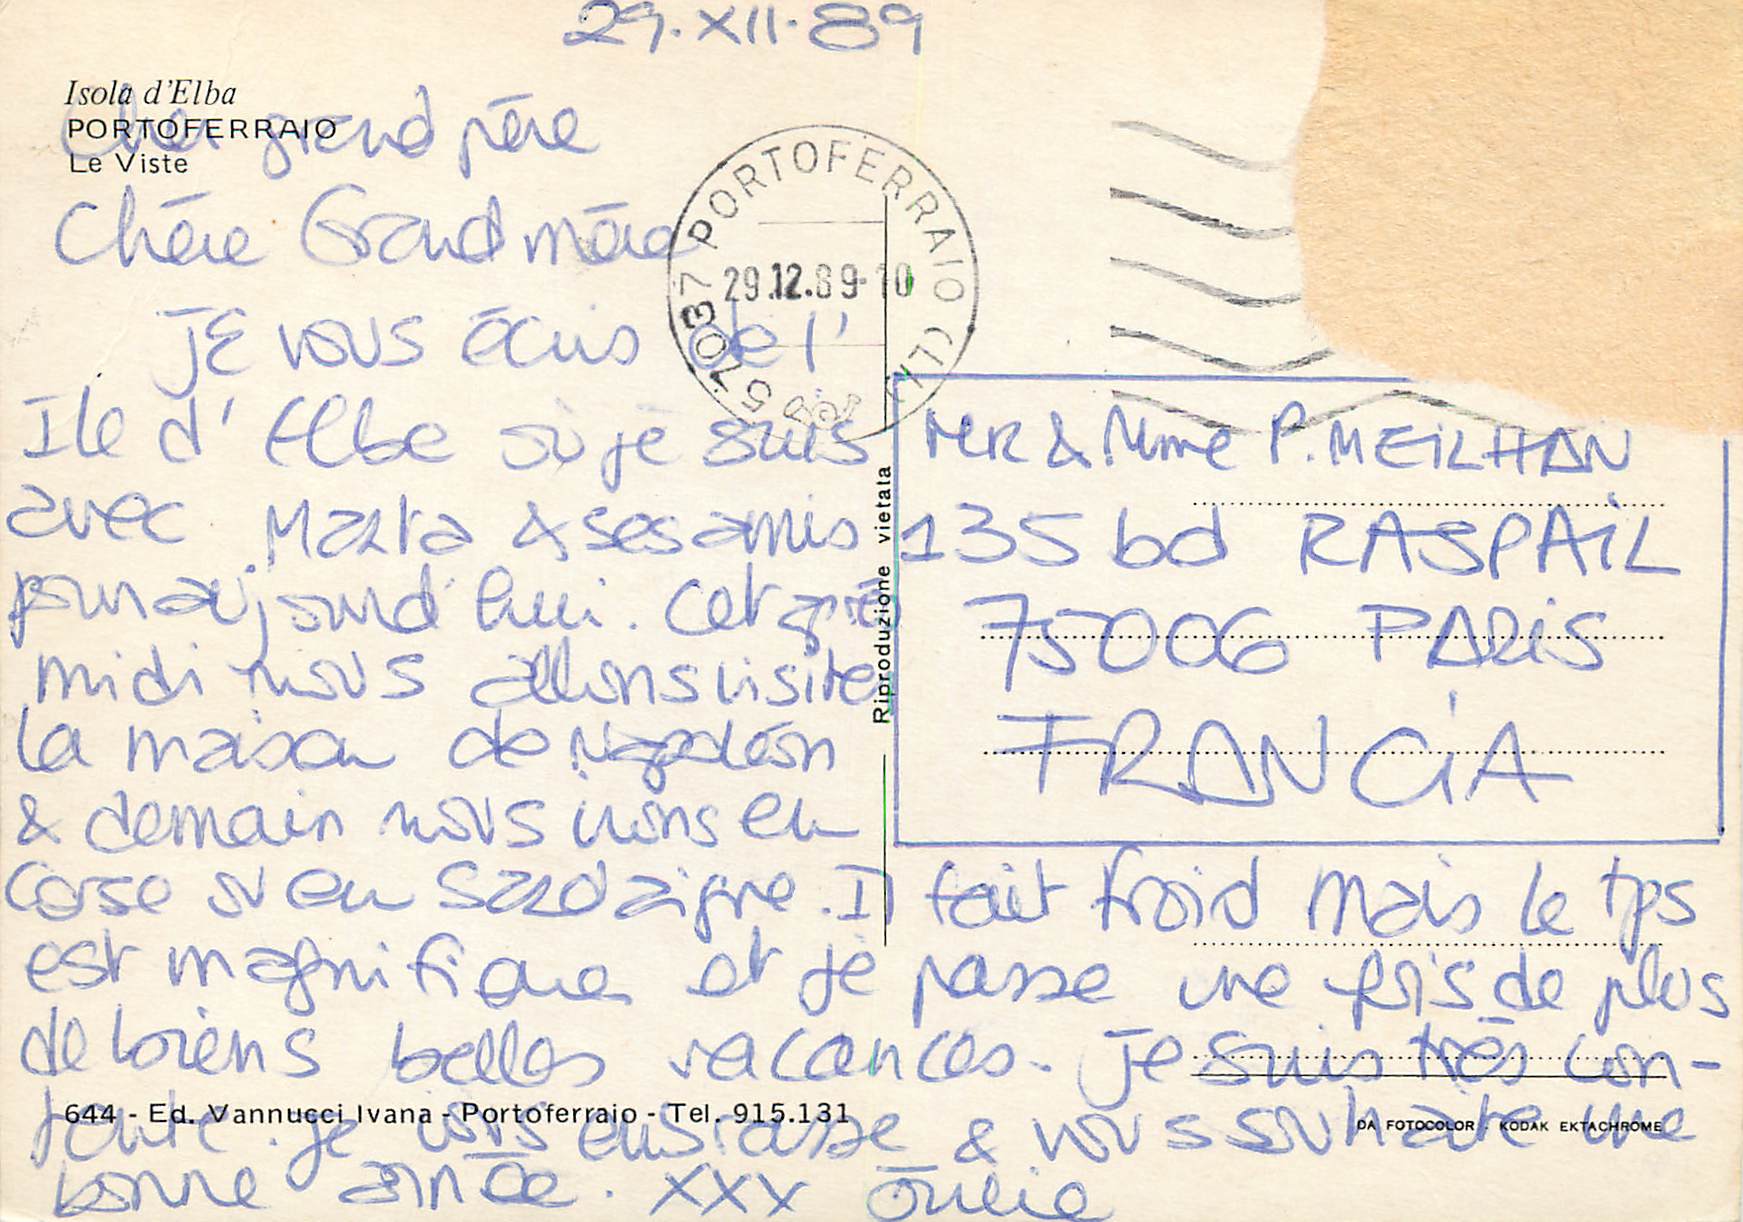 29.XII.89
Isola d'Elba
PORTOFERRAIO
Le Viste
Cher grand père
Chère Grand mère
57037 PORTOFERRAIO (LI)
29.12.89-10
JE vous écris de l'
Ile d'Elbe où je suis
avec Marta & ses amis
pour aujourd'hui. Cet après
midi nous allons visiter
la maison de Napoléon
& demain nous irons en
Corse ou en Sardaigne. Il fait froid mais le tps
est magnifique et je passe une fois de plus
de biens belles vacances. Je suis très con-
tente. Je vous embrasse & vous souhaite une
bonne année. XXX
Riproduzione vietata
MR & Mme P. MEILHAN
135 bd RASPAIL
75006 PARIS
FRANCIA
644 - Ed. Vannucci Ivana - Portoferraio - Tel. 915.131
DA FOTOCOLOR - KODAK EKTACHROME